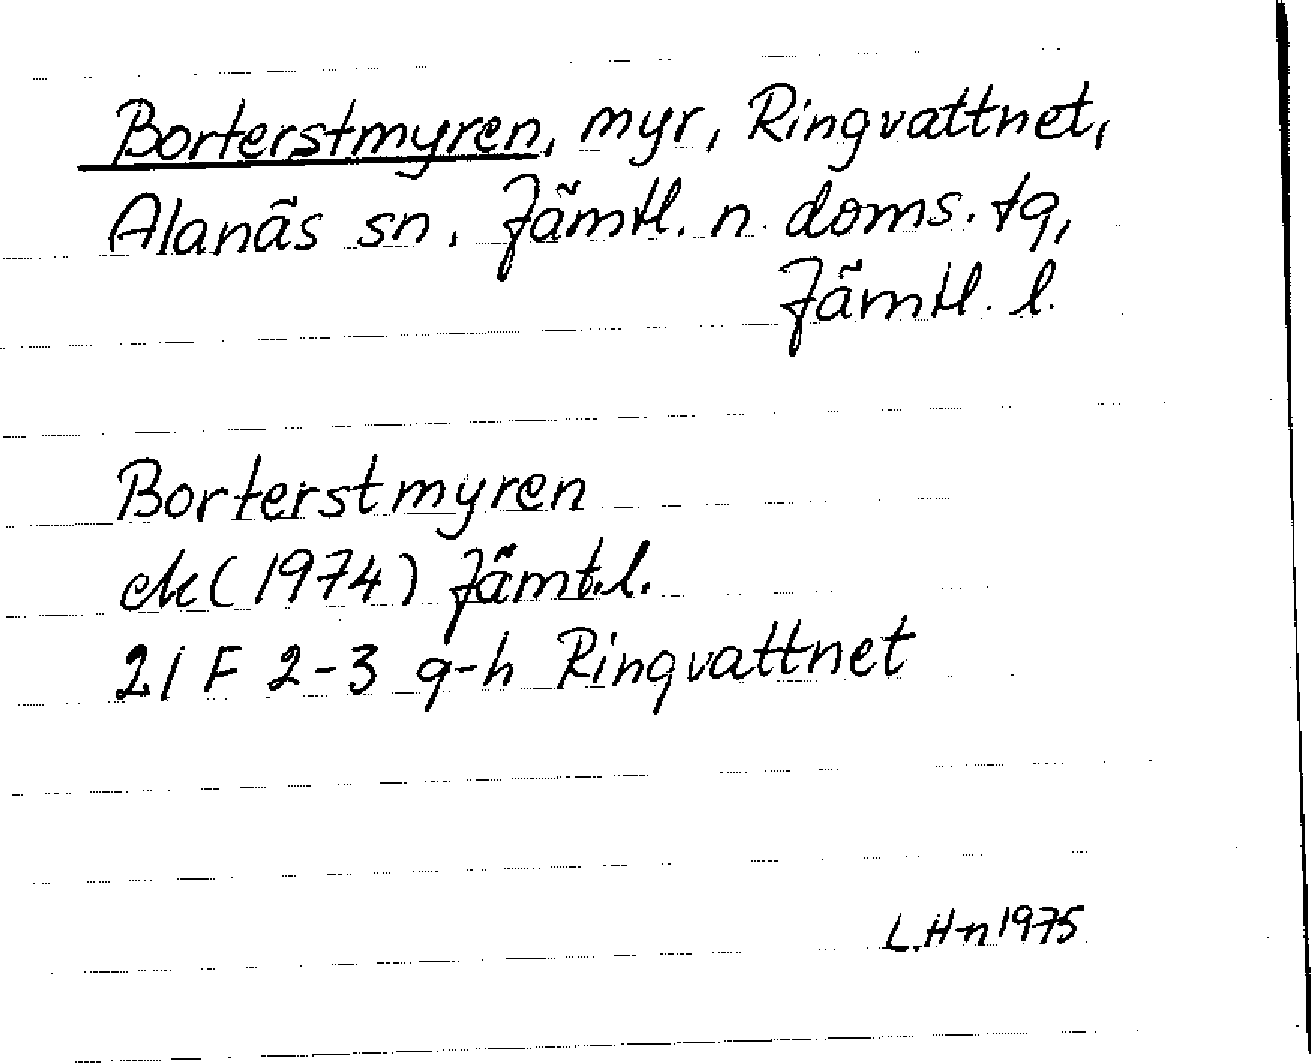 Borterstmyren, myr, Ringvattnet,
Alanäs sn. Jämtl. n. doms. tg,
Jämtl. l.
Borterstmyren
ek (1974) Jämt.l.
21 F 2-3 g-h Ringvattnet
L.H-n 1975